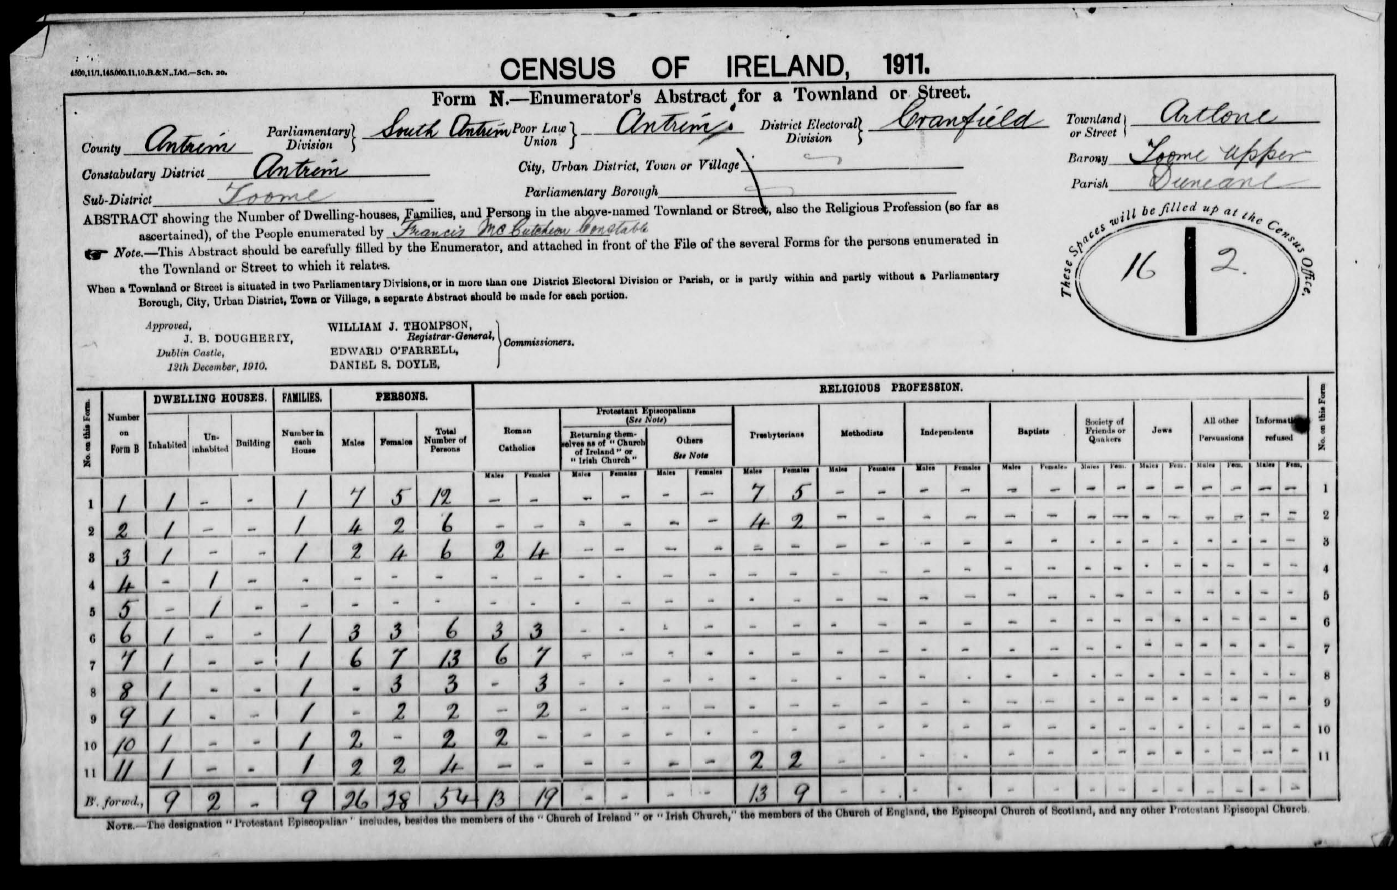 4500,11/1,145,000,11,10.B.&N.,Ltd.—Sch. 20.
CENSUS OF IRELAND, 1911.
Form N.—Enumerator's Abstract for a Townland or Street.
County Antrim Parliamentary Division } South Antrim Poor Law Union } Antrim District Electoral Division } Cranfield Townland or Street } Artlone
Constabulary District Antrim City, Urban District, Town or Village Barony Toome Upper
Sub-District Toome Parliamentary Borough Parish Duneane
ABSTRACT showing the Number of Dwelling-houses, Families, and Persons in the above-named Townland or Street, also the Religious Profession (so far as
ascertained), of the People enumerated by Francis McCutcheon Constable
☞ Note.—This Abstract should be carefully filled by the Enumerator, and attached in front of the File of the several Forms for the persons enumerated in
the Townland or Street to which it relates.
When a Townland or Street is situated in two Parliamentary Divisions, or in more than one District Electoral Division or Parish, or is partly within and partly without a Parliamentary
Borough, City, Urban District, Town or Village, a separate Abstract should be made for each portion.
These Spaces will be filled up at the Census Office.
16 2.
Approved,
J. B. DOUGHERTY,
Dublin Castle,
12th December, 1910.
WILLIAM J. THOMPSON,
Registrar-General,
EDWARD O'FARRELL,
DANIEL S. DOYLE,
} Commissioners.
No. on this Form. Number on Form B DWELLING HOUSES. FAMILIES. PERSONS. RELIGIOUS PROFESSION. No. on this Form
Inhabited Un-inhabited Building Number in each House Males Females Total Number of Persons Roman Catholics Protestant Episcopalians (See Note) Presbyterians Methodists Independents Baptists Society of Friends or Quakers Jews All other Persuasions Information refused
Returning themselves as of "Church of Ireland" or "Irish Church" Others See Note
Males Females Males Females Males Females Males Females Males Females Males Females Males Females Males Fem. Males Fem. Males Fem. Males Fem.
1 1 1 - - 1 7 5 12 - - - - - - 7 5 - - - - - - - - - - - - - - 1
2 2 1 - - 1 4 2 6 - - - - - - 4 2 - - - - - - - - - - - - - - 2
3 3 1 - - 1 2 4 6 2 4 - - - - - - - - - - - - - - - - - - - - 3
4 4 - 1 - - - - - - - - - - - - - - - - - - - - - - - - - - - 4
5 5 - 1 - - - - - - - - - - - - - - - - - - - - - - - - - - - 5
6 6 1 - - 1 3 3 6 3 3 - - - - - - - - - - - - - - - - - - - - 6
7 7 1 - - 1 6 7 13 6 7 - - - - - - - - - - - - - - - - - - - - 7
8 8 1 - - 1 - 3 3 - 3 - - - - - - - - - - - - - - - - - - - - 8
9 9 1 - - 1 - 2 2 - 2 - - - - - - - - - - - - - - - - - - - - 9
10 10 1 - - 1 2 - 2 2 - - - - - - - - - - - - - - - - - - - - - 10
11 11 1 - - 1 2 2 4 - - - - - - 2 2 - - - - - - - - - - - - - - 11
Bt. forwd., 9 2 - 9 26 28 54 13 19 - - - - 13 9 - - - - - - - - - - - - - -
NOTE.—The designation "Protestant Episcopalian" includes, besides the members of the "Church of Ireland" or "Irish Church," the members of the Church of England, the Episcopal Church of Scotland, and any other Protestant Episcopal Church.